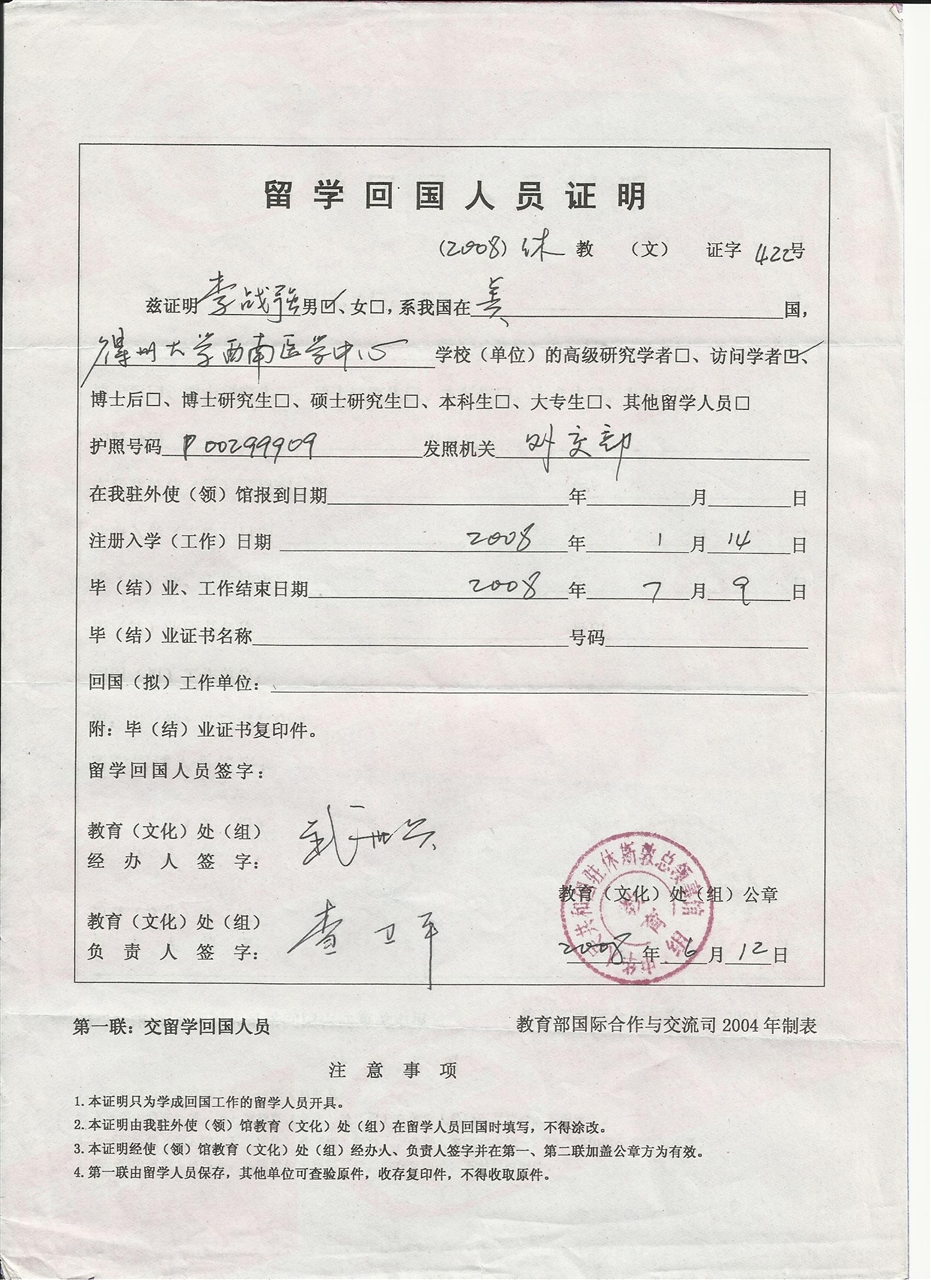 留学回国人员证明
(2008) 休 教 （文） 证字 422号
兹证明 李战强 男☑、女□，系我国在 美 国，
得州大学西南医学中心 学校（单位）的高级研究学者□、访问学者☑、
博士后□、博士研究生□、硕士研究生□、本科生□、大专生□、其他留学人员□
护照号码 P00299909 发照机关 外交部
在我驻外使（领）馆报到日期 年 月 日
注册入学（工作）日期 2008 年 1 月 14 日
毕（结）业、工作结束日期 2008 年 7 月 9 日
毕（结）业证书名称 号码
回国（拟）工作单位：
附：毕（结）业证书复印件。
留学回国人员签字：
教育（文化）处（组）
经办人签字：
教育（文化）处（组）公章
教育（文化）处（组）
负责人签字： 查卫平
2008 年 6 月 12 日
中华人民共和国驻休斯敦总领事馆
教育组
第一联：交留学回国人员 教育部国际合作与交流司 2004 年制表
注意事项
1.本证明只为学成回国工作的留学人员开具。
2.本证明由我驻外使（领）馆教育（文化）处（组）在留学人员回国时填写，不得涂改。
3.本证明经使（领）馆教育（文化）处（组）经办人、负责人签字并在第一、第二联加盖公章方为有效。
4.第一联由留学人员保存，其他单位可查验原件，收存复印件，不得收取原件。